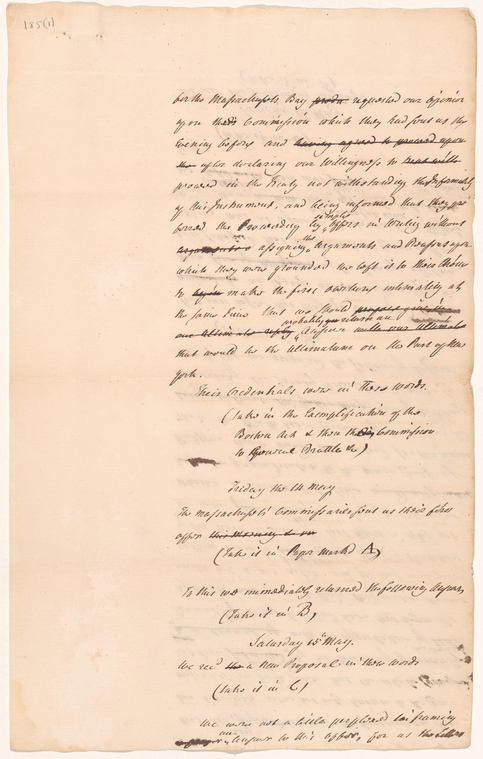 185(1)
for the Massachusetts Bay produ requested our opinion
upon the Commission which they had sent us the
Evening before and having agreed to proceed upon
the after declaring our Willingness to treat with
proceed in the Treaty not withstanding the Informality
of this Instrument, and being informed that they pre
ferred the Proceeding by simple offers in Writing without
arguments or assigning the Arguments and Reasons upon
which they were grounded we left it to their Choice
to begin make the first overtures intimating at
the same Time that we should propose give in
our Ultimatum reply probably return an Answer with our Ultimat
that would be the Ultimatum on the Part of New
York.
Their Credentials were in these words.
(take in the Exemplification of the
Boston Act & then the Commission
to General Brattle &c)
Friday the 14 May
The Massachusets' Commissaries sent us their first
offer this Morning
(Take it in Paper markd A)
To this we immediately returned the following Answer,
(Take it in B)
Saturday 15th May.
We recd the a new Proposal in these words
(take it in C)
We were not a little perplexed in framing
our Answer to this offer, for as the letter